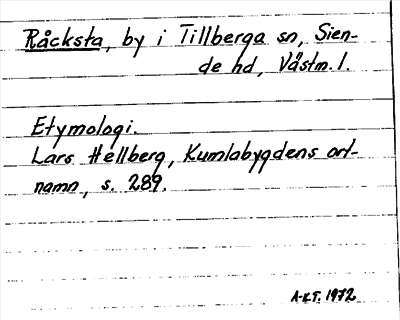 Råcksta, by i Tillberga sn, Sien-
de hd, Västm. l.
Etymologi.
Lars Hellberg, Kumlabygdens ort-
namn, s. 289.
A-L.T. 1972